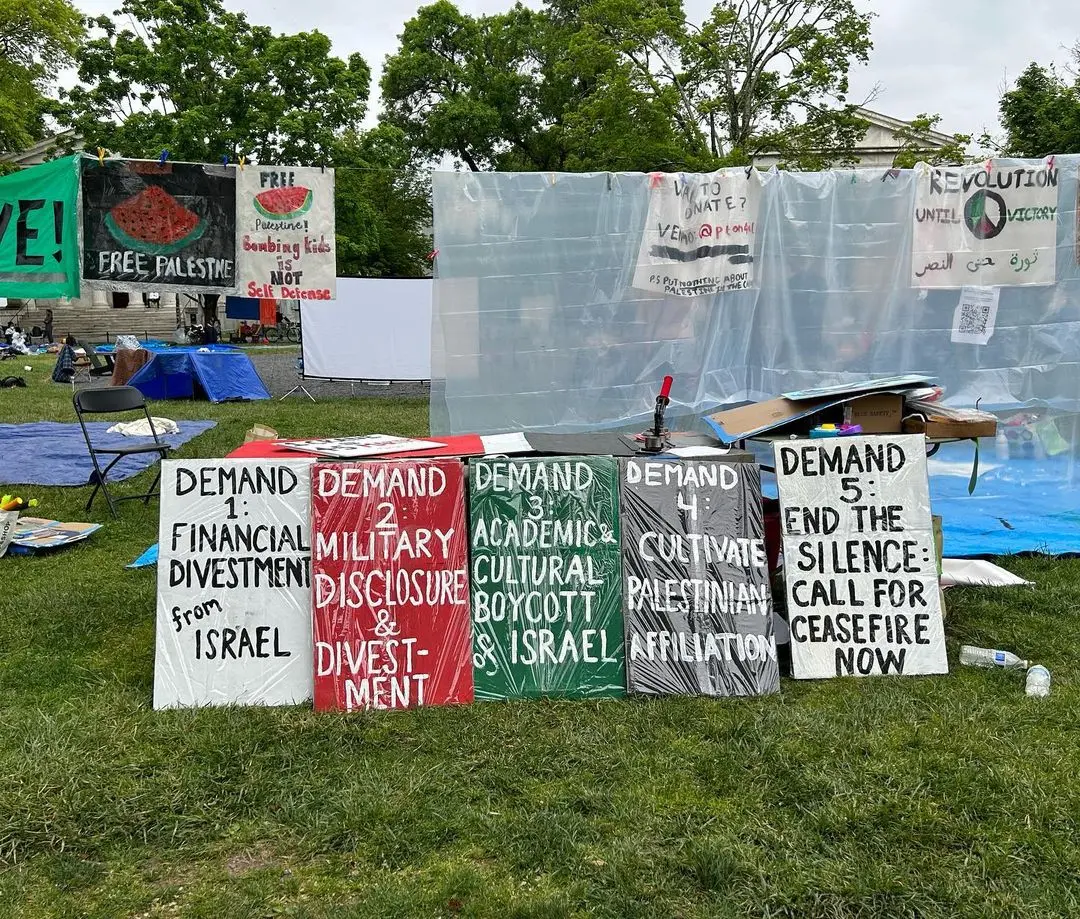 VE!
FREE PALESTINE
FREE
Palestine!
Bombing kids
is
NOT
Self Defense
TO
NATE?
P.S PUT NOTHING ABOUT
PALESTINE IN THE
REVOLUTION
UNTIL VICTORY
ثورة حتى النصر
BLUE SAFETY
DEMAND
1:
FINANCIAL
DIVESTMENT
from
ISRAEL
DEMAND
2:
MILITARY
DISCLOSURE
&
DIVEST-
MENT
DEMAND
3:
ACADEMIC &
CULTURAL
BOYCOTT
of ISRAEL
DEMAND
4:
CULTIVATE
PALESTINIAN
AFFILIATION
DEMAND
5:
END THE
SILENCE:
CALL FOR
CEASEFIRE
NOW